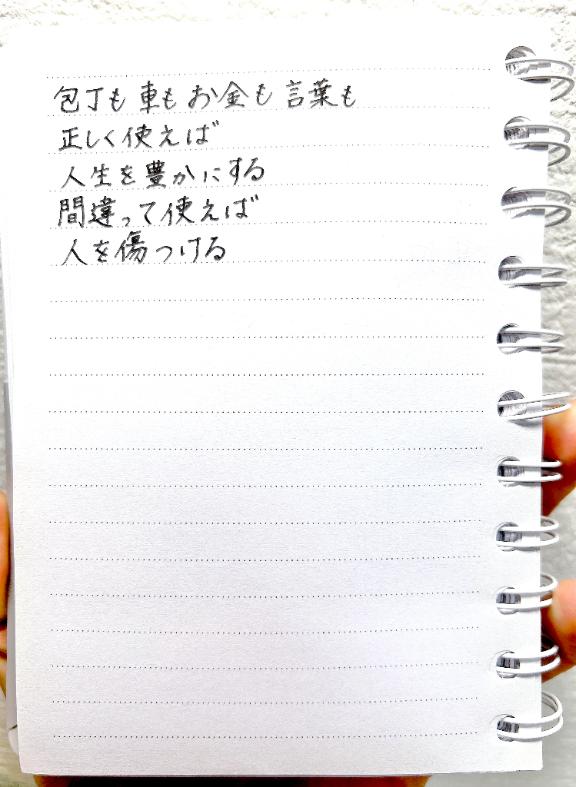 包丁も 車も お金も 言葉も
正しく使えば
人生を豊かにする
間違って使えば
人を傷つける